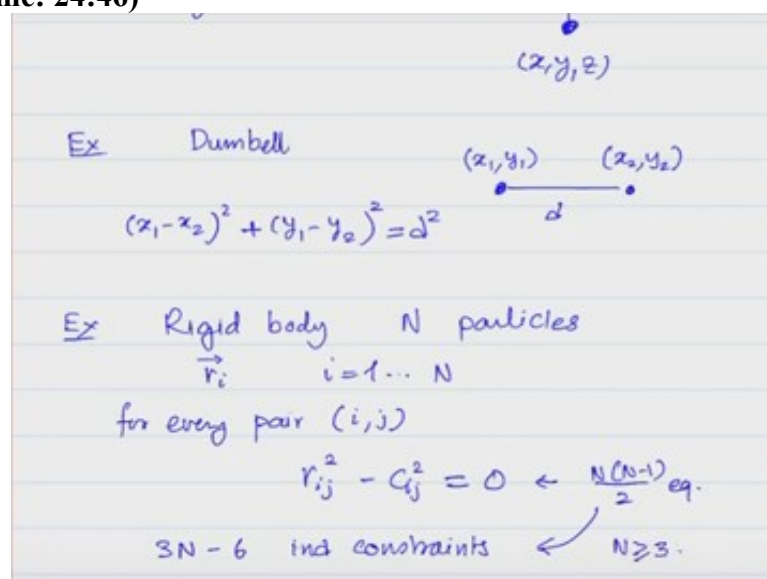 (x,y,z)
Ex Dumbell
(x₁,y₁) (x₂,y₂)
(x₁-x₂)² + (y₁-y₂)² = d² d
Ex Rigid body N particles
r⃗ᵢ i=1... N
for every pair (i,j)
rᵢⱼ² - Cᵢⱼ² = 0 ← N(N-1)/2 eq.
3N-6 ind constraints ← N≥3.